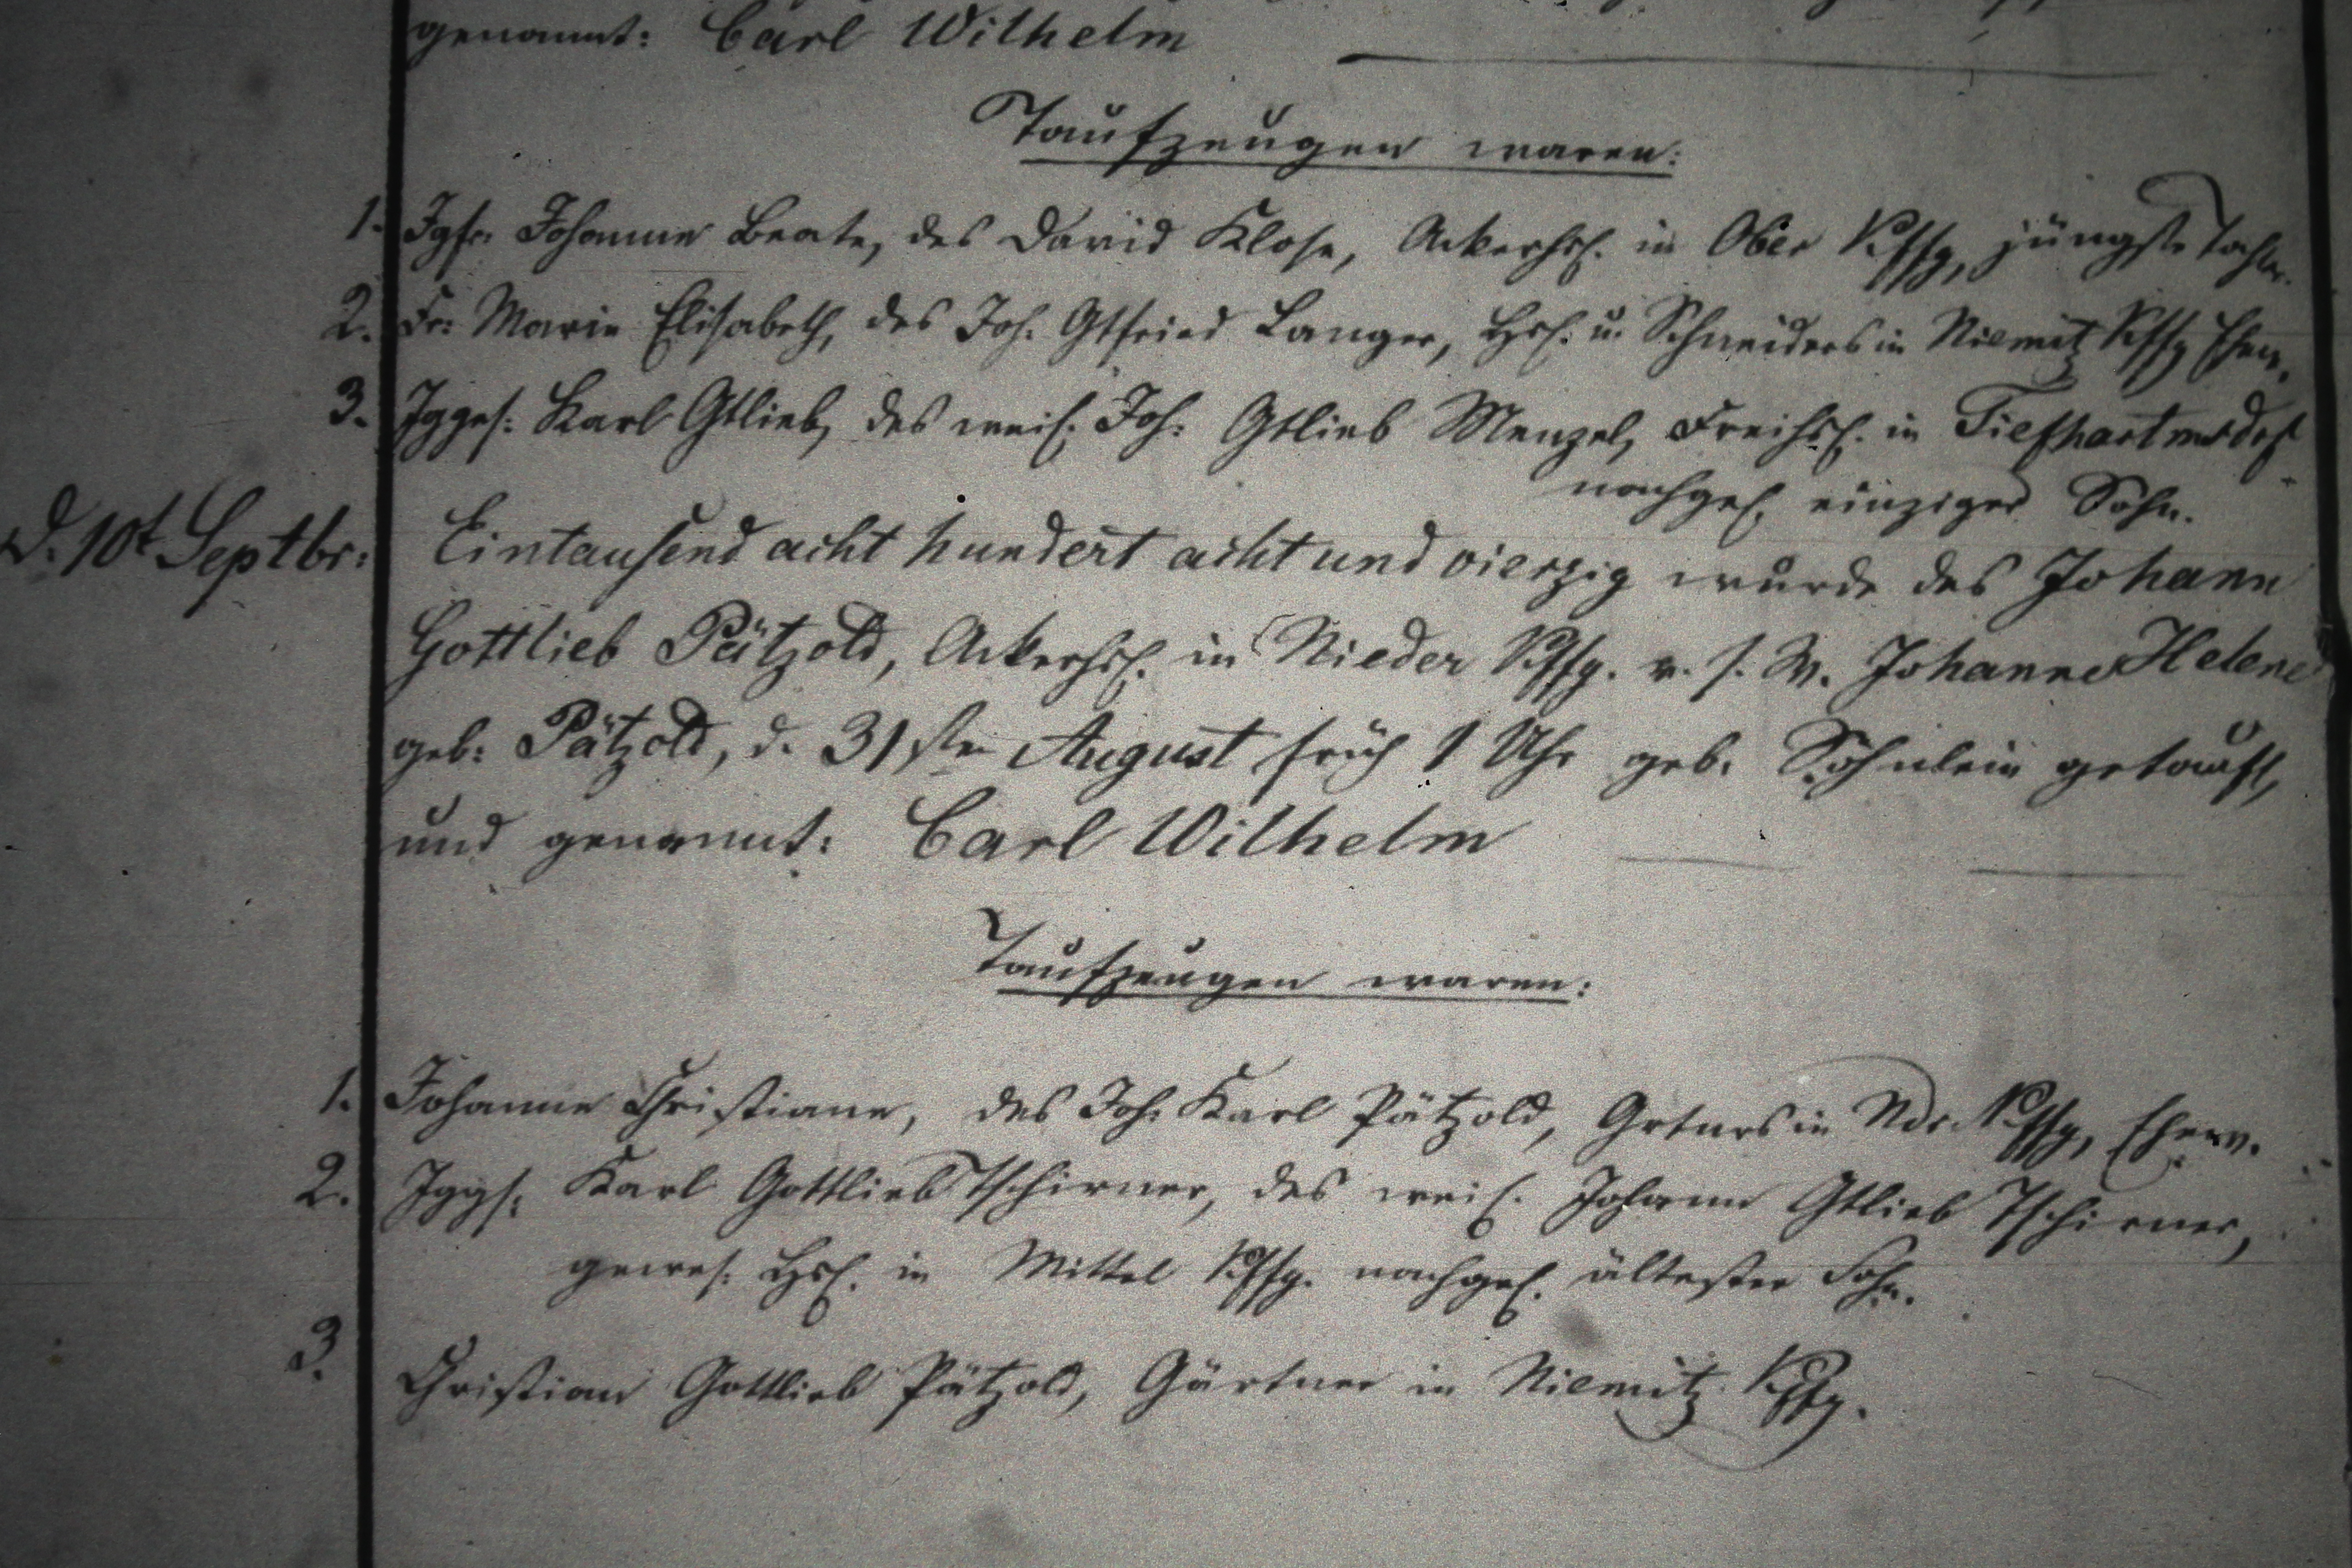 genannt: Carl Wilhelm
Taufzeugen waren:
1. Jgfr. Johanne Beate, des David Klose, Ackerhsl. in Ober Kffg, jüngste Tochter.
2. Fr: Marie Elisabeth, des Joh. Gtfried Langer, Hsl. u. Schneiders in Niemitz Kffg Ehew.
3. Jgges: Karl Gtlieb, des weil. Joh: Gtlieb Menzel, Freihsl. in Tiefhartmsdrf
nachgel. einziger Sohn.
d. 10t Septbr: Eintausend acht hundert acht und vierzig wurde des Johann
Gottlieb Pätzold, Ackerhsl. in Nieder Kffg. v. s. W. Johanne Helene
geb: Pätzold, d. 31sten August früh 1 Uhr geb. Söhnlein getauft,
und genannt: Carl Wilhelm
Taufzeugen waren:
1. Johanne Christiane, des Joh. Karl Pätzold, Grtnrs in Ndr. Kffg, Ehew.
2. Jggs: Karl Gottlieb Tschirner, des weil. Johann Gtlieb Tschirner,
gewes: Hsl. in Mittel Kffg. nachgel. ältester Sohn.
3. Christian Gottlieb Pätzold, Gärtner in Niemitz Kffg.